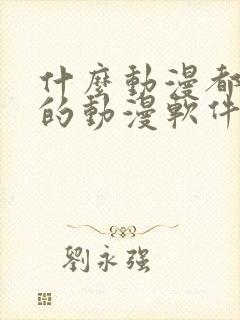 什麼動漫都
的動漫軟件
劉永強